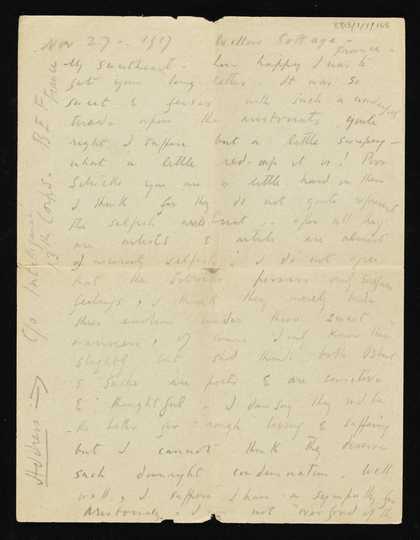 Nov 27 - 1917 Willow Cottage -
France -
My sweetheart - how happy I was to
get your long letter. It was so
sweet & with such a
tirade upon the aristocrats quite
right, I suppose but a little sweeping -
what a little red-cap it is! Poor
Sitwells you are a little hard on them
I think for they do not quite represent
the selfish aristocrat - after all they
are artists & artists are almost
of necessity selfish; I do not agree
that the Sitwells possess only
feelings, I think they merely hide
their emotions under those sweet
manners, of course I only know them
slightly but said them both Osbert
& Sachie are poets & are sensitive
& thoughtful - I daresay they wd be
the better for rough living & suffering
but I cannot think they deserve
such downright condemnation. Well
well, I suppose I have a sympathy for
Aristocracy - I am not over fond of the
Address → c/o Intelligence
13th Corps. B E F
France